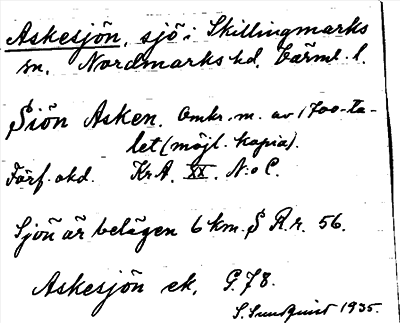 Askesjön, sjö i Skillingmarks
sn, Nordmarks hd, Värml. l.
Siön Asken. Omkr. m. av 1700-ta-
let (möjl. kopia).
Förf. okd. KrA. XX. N:o C.
Sjön är belägen 6 km. S R.r. 56.
Askesjön ek. G.78.
S. Sundquist 1935.